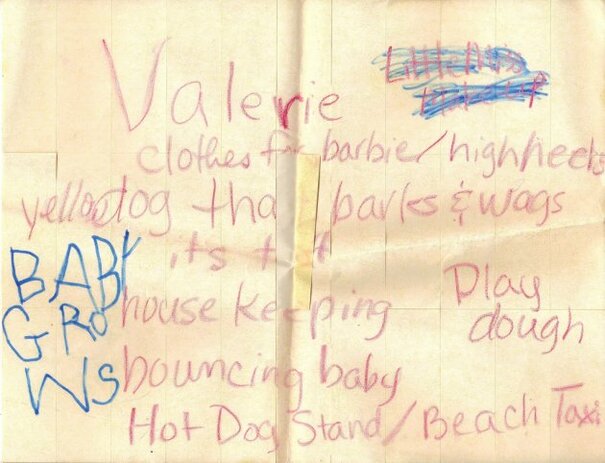 Valerie
Little Miss
clothes for barbie/high heels
yellow dog tha barks & wags
its t
BABY
GROWS
house keeping
Play
dough
bouncing baby
Hot Dog Stand/Beach Taxi